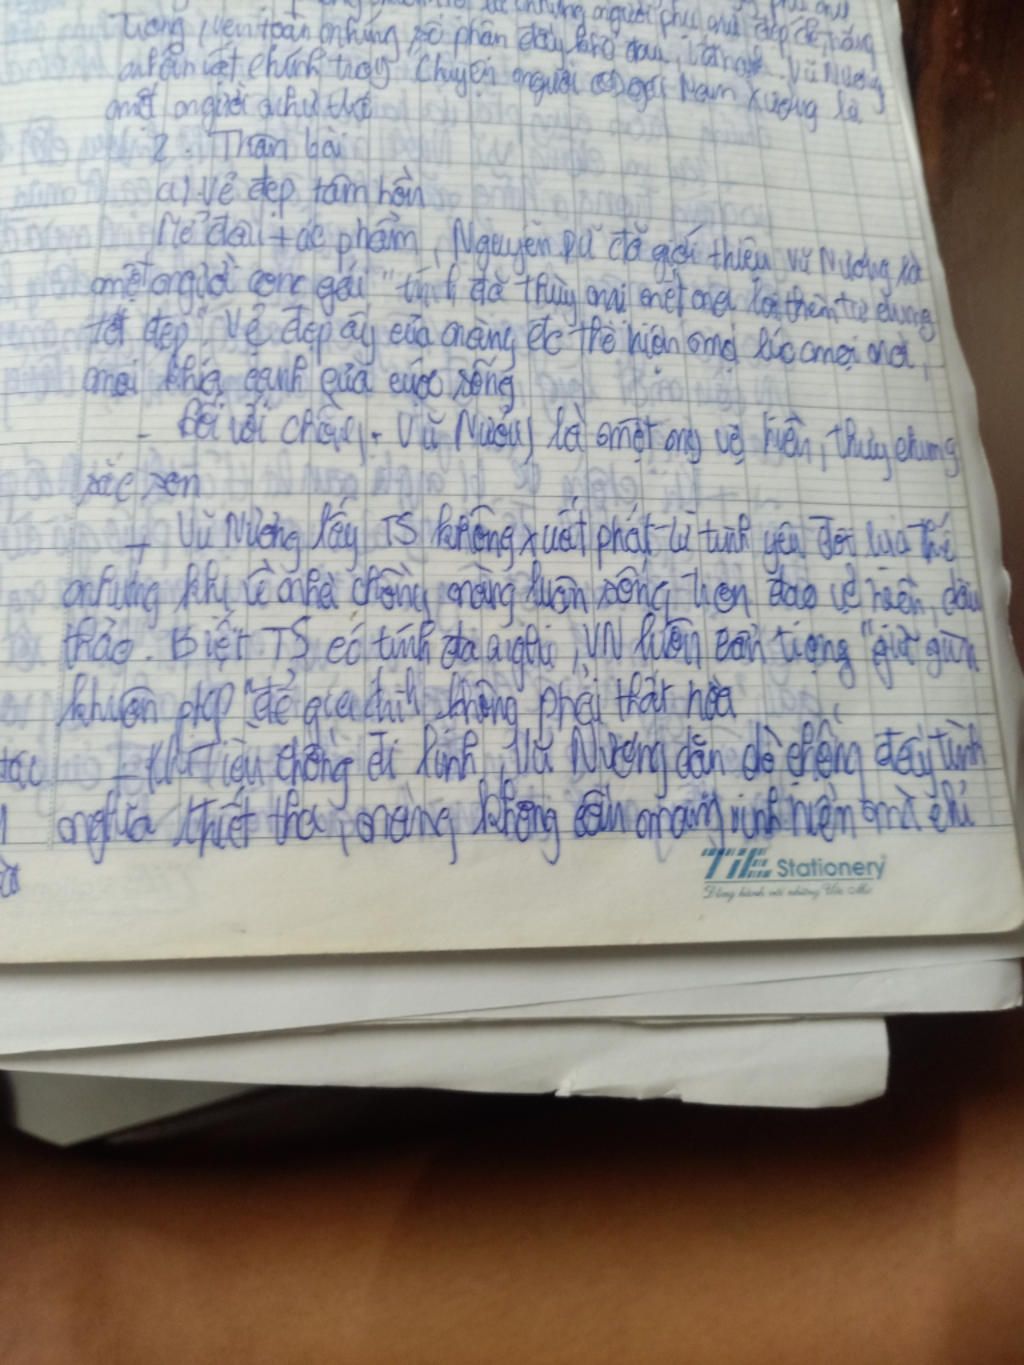 những người phụ nữ đẹp đẽ, trong
trắng, vẹn toàn nhưng số phận đầy khổ đau, Vũ Nương
nhân vật chính trong Chuyện người con gái Nam Xương là
một người như thế
2. Thân bài
a) Vẻ đẹp tâm hồn
Mở đầu tác phẩm, Nguyễn Dữ đã giới thiệu Vũ Nương là
một người con gái "tính đã thùy mị nết na lại thêm tư dung
tốt đẹp". Vẻ đẹp ấy của nàng đc thể hiện ở mọi lúc mọi nơi,
mọi khía cạnh của cuộc sống
- Đối với chồng. Vũ Nương là một ng vợ hiền, thủy chung
sắc son
+ Vũ Nương lấy TS không xuất phát từ tình yêu đôi lứa thế
nhưng khi về nhà chồng nàng luôn sống trọn đạo vợ hiền, dâu
thảo. Biết TS có tính đa nghi, VN luôn "giữ gìn
khuôn phép" để gia đình không phải thất hòa
+ Khi tiễn chồng đi lính, Vũ Nương dặn dò chồng đầy tình
nghĩa thiết tha, nàng không cần mang vinh hiển mà chỉ
tác
TiE Stationery
Đồng hành với những Ước Mơ